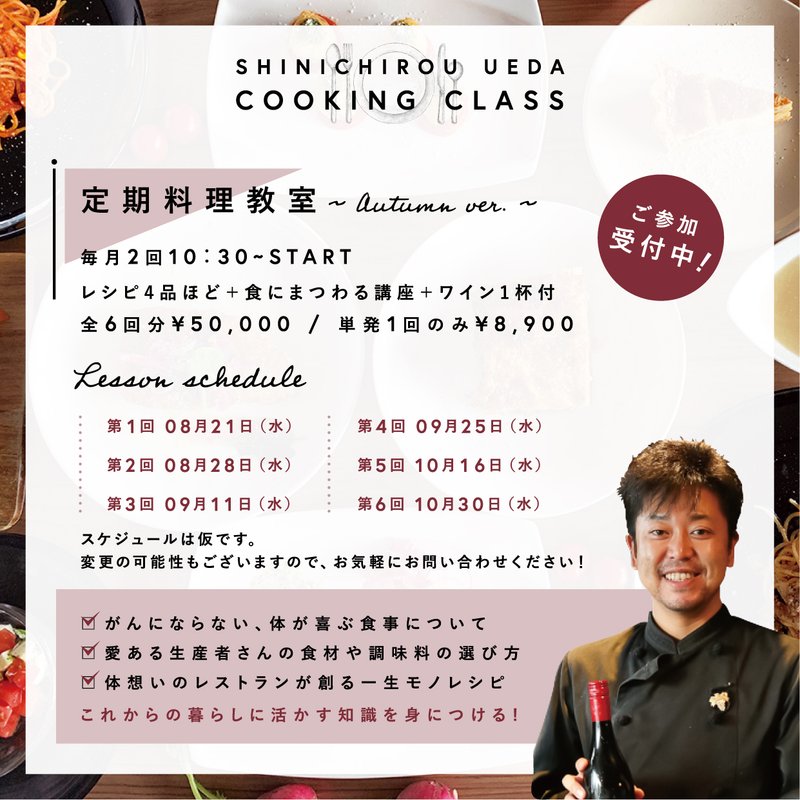 SHINICHIROU UEDA
COOKING CLASS
定期料理教室 ~ Autumn ver. ~
ご参加
受付中!
毎月2回10:30~START
レシピ4品ほど+食にまつわる講座+ワイン1杯付
全6回分¥50,000 / 単発1回のみ¥8,900
Lesson schedule
第1回 08月21日(水)
第2回 08月28日(水)
第3回 09月11日(水)
第4回 09月25日(水)
第5回 10月16日(水)
第6回 10月30日(水)
スケジュールは仮です。
変更の可能性もございますので、お気軽にお問い合わせください!
がんにならない、体が喜ぶ食事について
愛ある生産者さんの食材や調味料の選び方
体想いのレストランが創る一生モノレシピ
これからの暮らしに活かす知識を身につける!